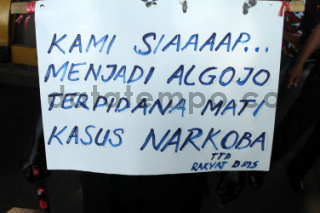 KAMI SIAAAAP...
MENJADI ALGOJO
TERPIDANA MATI
KASUS NARKOBA
TTD
RAKYAT
datatempo.co